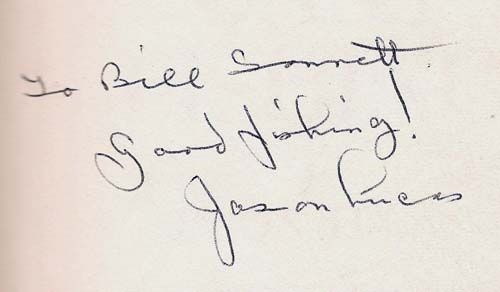 To Bill Sonnett.
Good fishing!
Jason Lucas